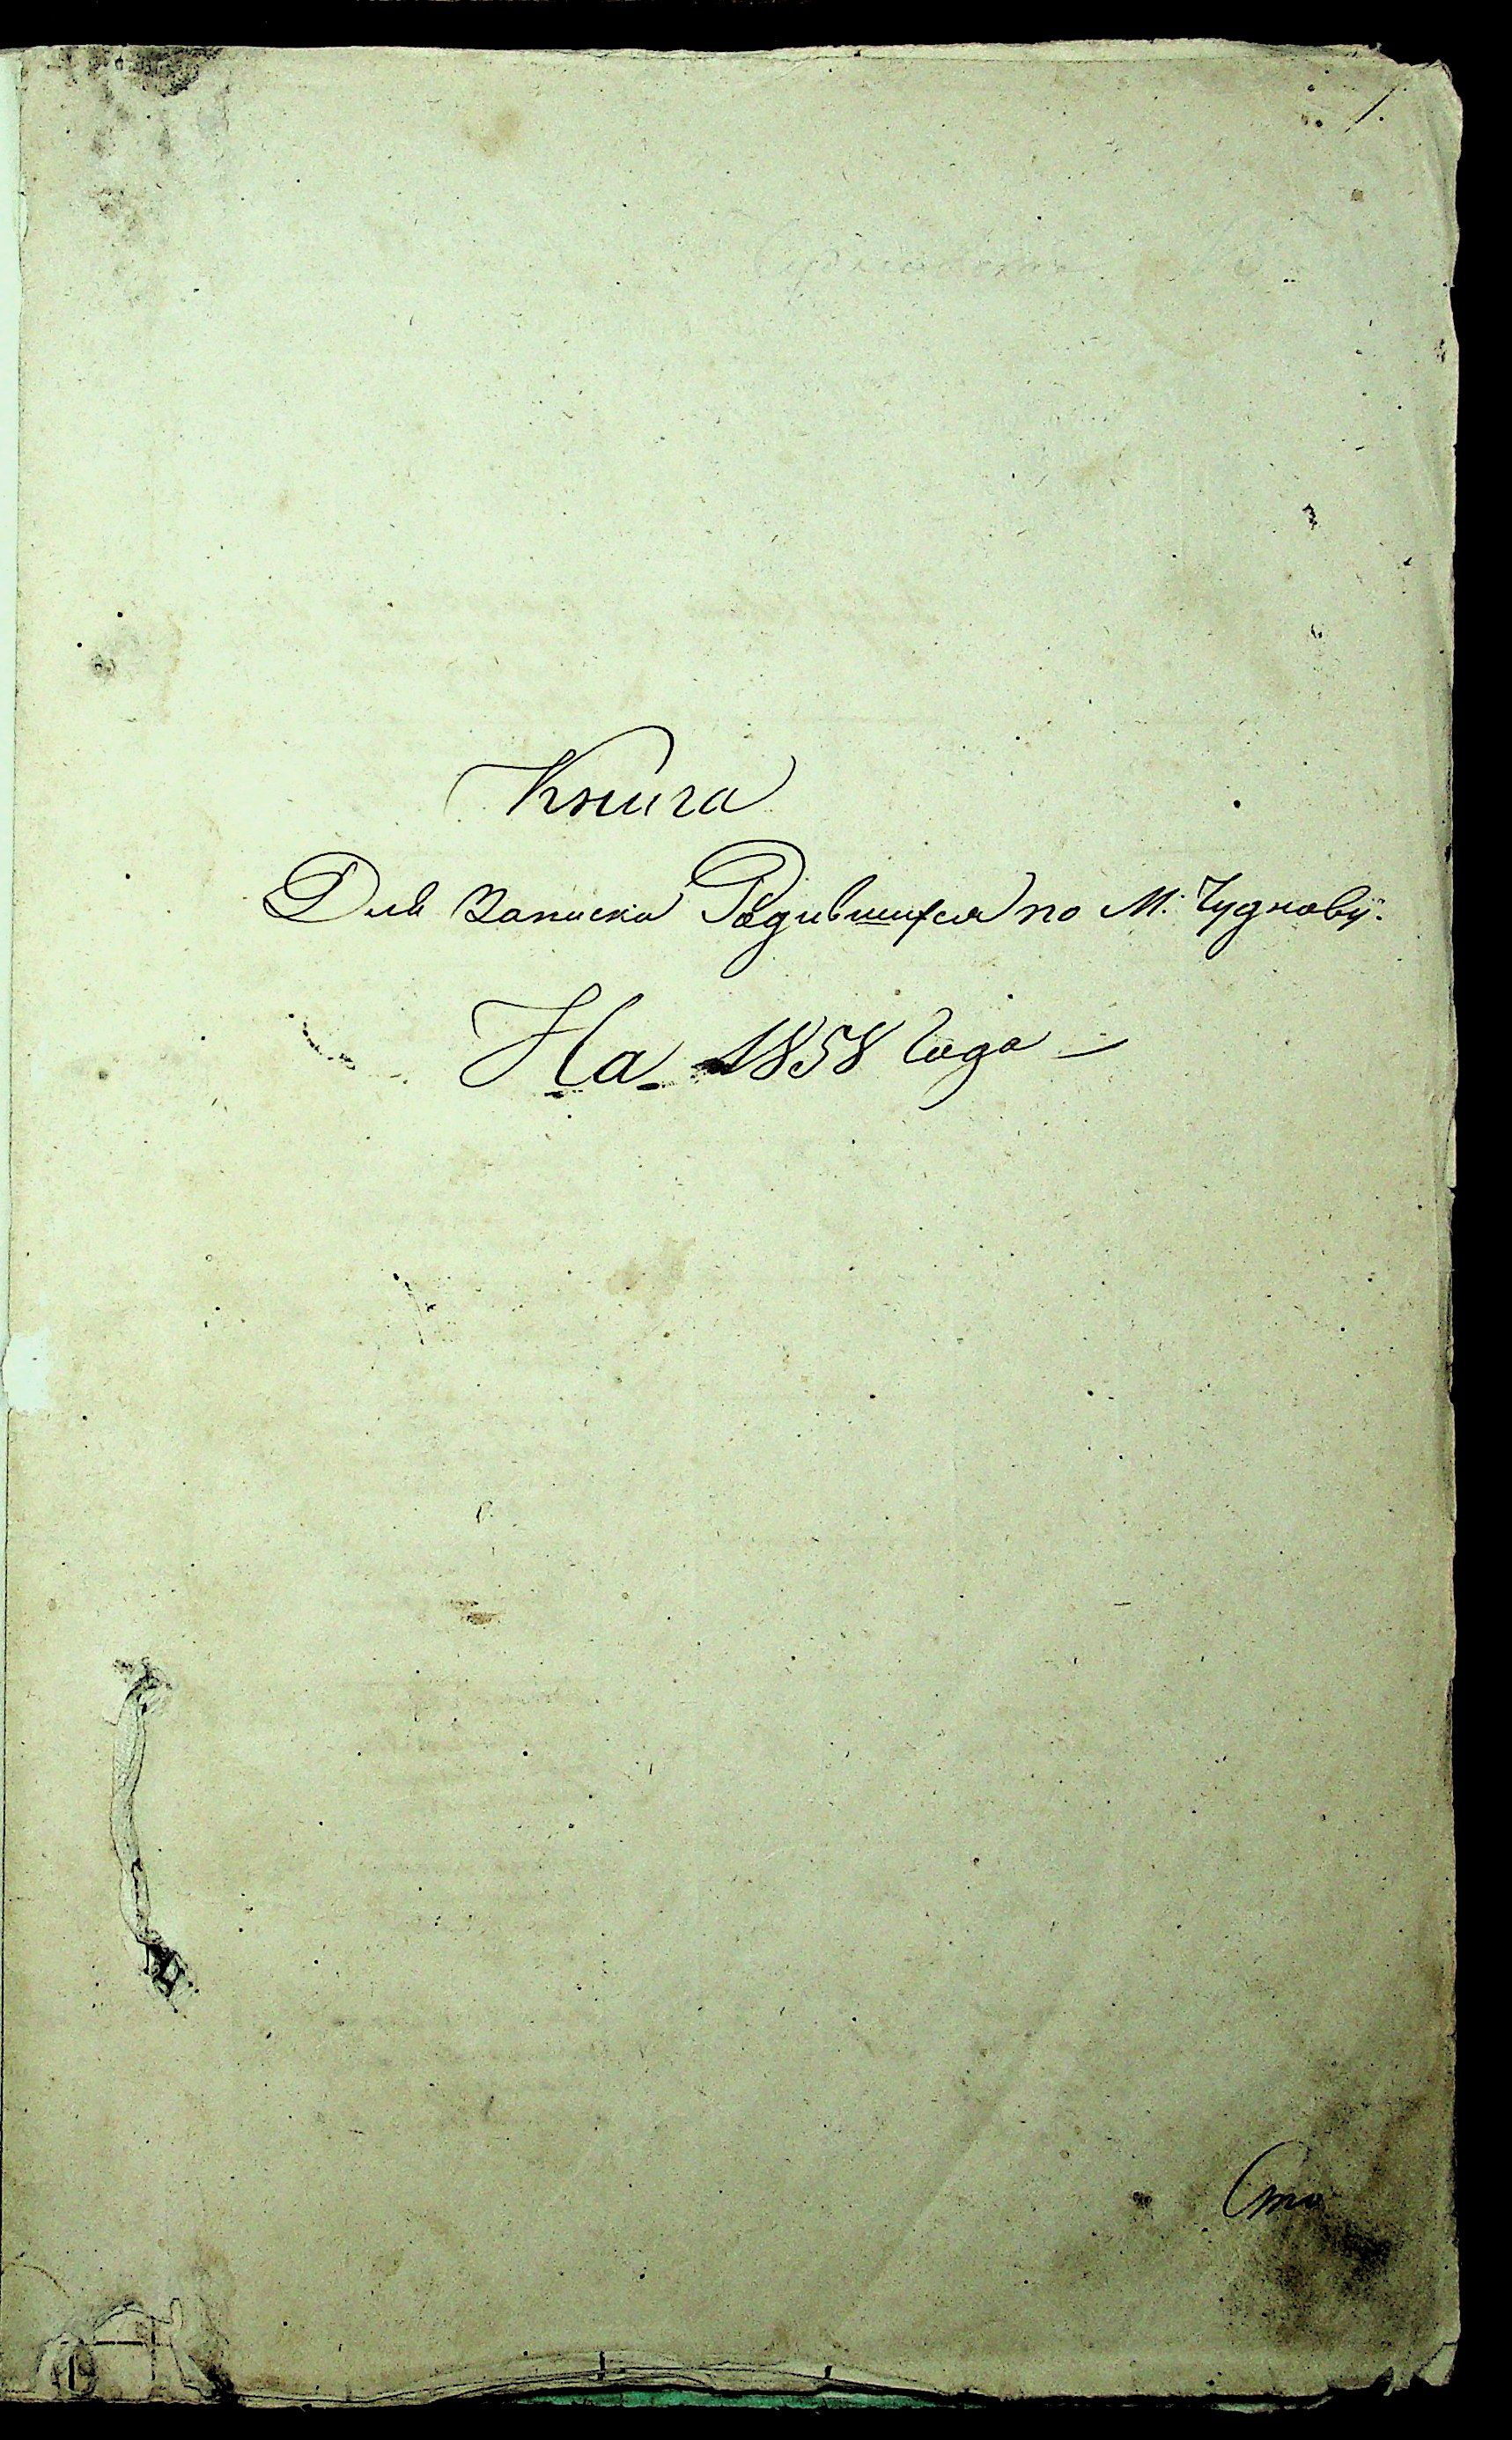 1.
Книга
Для Записки Родившихся по М. Чуднову.
На 1858 Года